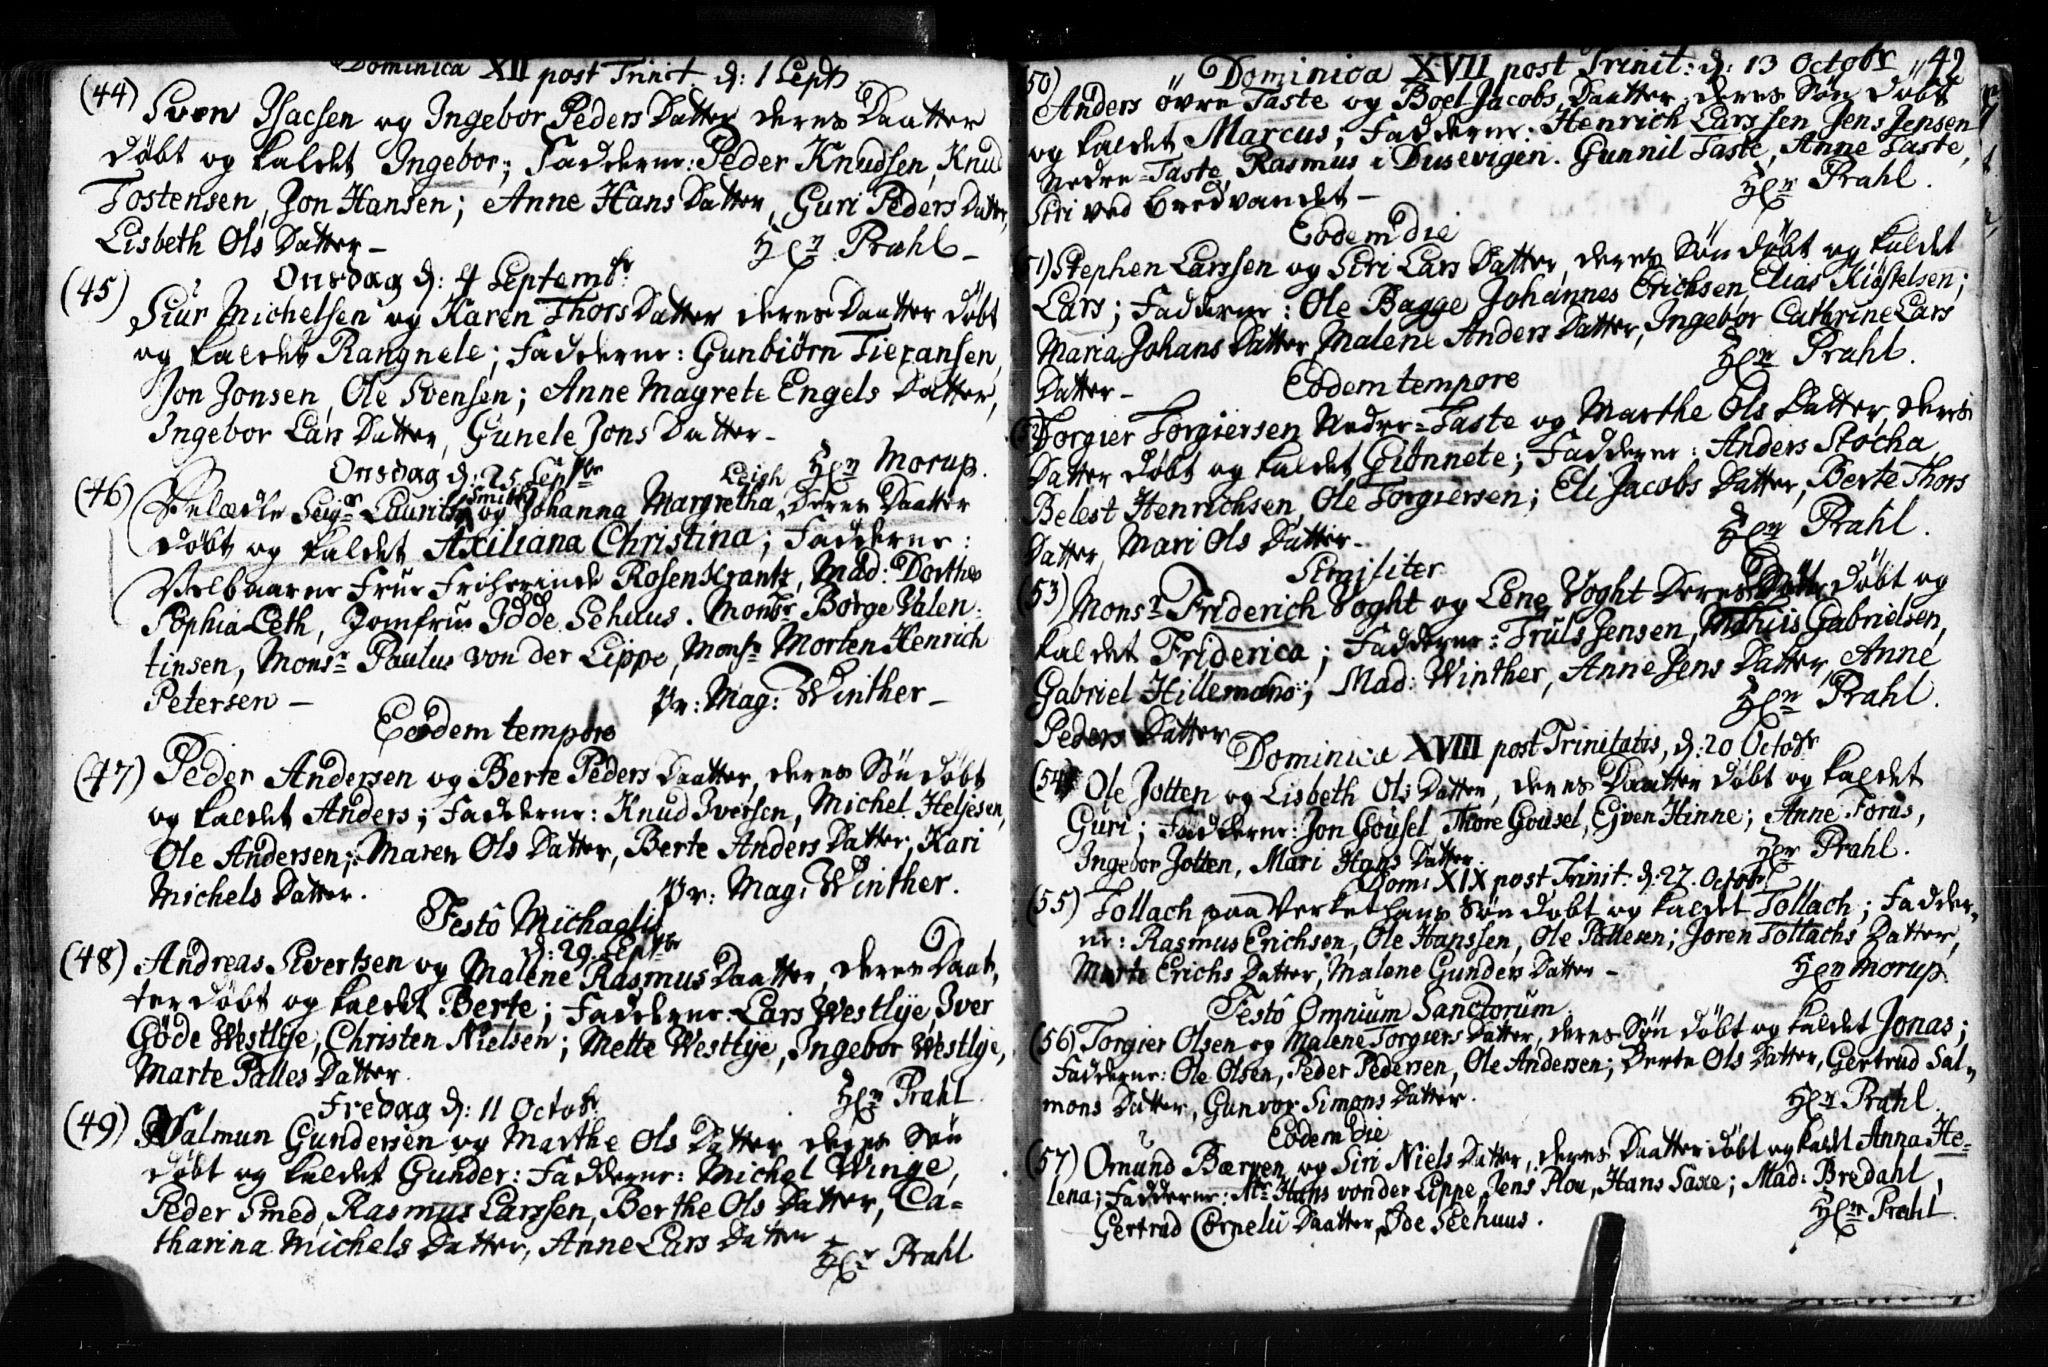 Dominica XII post Trinit. d: 1 Septr
(44) Sven Isacsen og Ingebor Peders Datter deres Daatter
døbt og kaldet Ingebor; Fadderne: Peder Knudsen, Knud
Tostensen, Jon Hansen; Anne Hans Datter, Guri Peders Datter,
Lisbeth Ols Datter – Hr. Prahl –
Onsdag d: 4 Septembr
(45) Siur Michelsen og Karen Thors Datter deres Daatter døbt
og kaldet Rangnele; Fadderne: Gunbiørn
Jon Jonsen, Ole Svensen; Anne Magrete Engels Datter,
Ingebor Lars Datter, Gunele Jons Datter –
Onsdag d: 25 Septbr Leigh Hr. Morup.
(46) Velædle Seigr Lauritz Smith og Johanna Margretha, deres Daatter
døbt og kaldet Axiliana Christina; Fadderne:
Velbaarne Frue Friherinde Rosenkrantz, Mad: Dorthe
Sophia Leth, Jomfru Idde Sehuus. Monsr Børge Valen-
tinsen, Monsr Paulus von der Lippe, Monsr Morten Henrich
Petersen – Pr: Mag: Winther –
Eodem tempore
(47) Peder Andersen og Berte Peders Daatter, deres Søn døbt
og kaldet Anders; Fadderne: Knud Iversen, Michel Heljesen,
Ole Andersen; Maren Ols Datter, Berte Anders Datter, Kari
Michels Datter. Pr: Mag: Winther.
Festô Michaelis
d: 29. Septbr
(48) Andreas Sivertsen og Malene Rasmus Daatter, deres Daat-
ter døbt og kaldet Berte; Fadderne: Lars Westlye, Iver
Gøde Westlye, Christen Nielsen; Mette Westlye, Ingebor Westlye,
Marte Palles Datter. Hr. Prahl
Fredag d: 11 Octobr
(49) Walmun Gundersen og Marthe Ols Datter deres Søn
døbt og kaldet Gunder: Fadderne: Michel Winge,
Peder Smed, Rasmus Larssen, Berthe Ols Datter, Ca-
tharina Michels Datter, Anne Lars Datter –
Hr. Prahl
Dominica XVII post Trinit: d: 13 Octobr 42
50) Anders øvre Taste og Boel Jacobs Daatter, deres Søn døbt
og kaldet Marcus; Fadderne: Henrich Larssen Jens Jensen
Nedre-Taste, Rasmus i Dusevigen. Gunnil Taste, Anne Taste,
Siri ved Bredvandet – Hr. Prahl.
Eodem die
51) Stephen Larssen og Siri Lars Datter, deres Søn døbt og kaldet
Lars; Fadderne: Ole Bagge Johannes Erichsen Elias Kiøstelsen;
Maria Johans Datter, Malene Anders Datter, Ingebor Cathrine Lars
Datter – Hr. Prahl.
Eodem tempore
52) Torgier Torgiersen Neder-Taste og Marthe Ols Datter, deres
Datter døbt og kaldet Giønnete; Fadderne: Anders Stocha
Belest Henrichsen, Ole Torgiersen; Eli Jacobs Datter, Berte Thors
Datter, Mari Ols Datter – Hr. Prahl.
Similiter
(53) Monsr Friderich Voght og Lene Voght deres Datter døbt og
kaldet Friderica; Fadderne: Truls Jensen, Gabrielsen,
Gabriel Hillemans; Mad: Winther, Anne Jens Datter, Anne
Peders Datter Hr. Prahl.
Dominica XVIII post Trinitatis, d: 20 Octobr
(54) Ole Jotten og Lisbeth Ols Datter, deres Daatter døbt og kaldet
Guri; Fadderne: Jon Gousel, Thore Gousel, Ejven Hinne; Anne Forus,
Ingebor Jotten, Mari Hans Datter. Hr. Prahl.
Dom: XIX post Trinit: d: 27. Octobr
(55) Tollach paa Verket hans Søn døbt og kaldet Tollach; Fadder-
ne: Rasmus Erichsen, Ole Hanssen, Ole Pallesen; Joren Tollachs Datter,
Marte Erichs Datter, Malene Gunders Datter – Hr. Morup.
Festô Omnium Sanctorum
(56) Torgier Olsen og Malene Torgiers Datter, deres Søn døbt og kaldet Jonas;
Fadderne: Ole Olsen, Peder Pedersen, Ole Andersen; Berte Ols Datter, Gertrud Sal-
mons Datter, Gunvor Simons Datter. Hr. Prahl
Eodem die
(57) Omund og Siri Niels Datter, deres Daatter døbt og kaldt Anna He-
lena; Fadderne: Mr Hans von der Lippe, Jens Plou, Hans Saxe; Mad: Bredahl,
Gertrud Corneli Daatter, Ide Seehuus. Hr. Prahl.